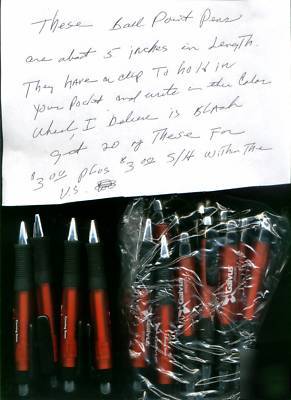 These Ball Point Pens
are about 5 inches in Length.
They have a clip To hold in
Your Pocket. and write in the Color
Which I believe is BLACK
get 20 of These For
$3.00 plus $3.00 S/H within The
U.S.